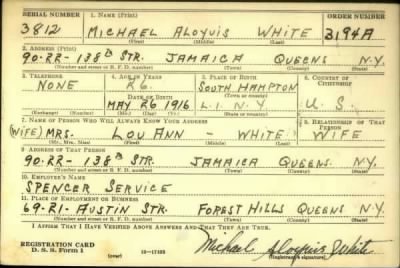 SERIAL NUMBER 1. NAME (Print) ORDER NUMBER
3812 MICHAEL ALOYUIS WHITE 3194A
(First) (Middle) (Last)
2. ADDRESS (Print)
90-22- 138th STR. JAMAICA QUEENS N.Y.
(Number and street or R. F. D. number) (Town) (County) (State)
3. TELEPHONE 4. AGE IN YEARS 5. PLACE OF BIRTH 6. COUNTRY OF CITIZENSHIP
NONE 26 SOUTH HAMPTON
DATE OF BIRTH (Town or county)
MAY 26 1916 L.I. N.Y. U.S.
(Exchange) (Number) (Mo.) (Day) (Yr.) (State or country)
7. NAME OF PERSON WHO WILL ALWAYS KNOW YOUR ADDRESS 8. RELATIONSHIP OF THAT PERSON
(WIFE) MRS. LOU ANN - WHITE WIFE
(Mr., Mrs., Miss) (First) (Middle) (Last)
9. ADDRESS OF THAT PERSON
90-22- 138th STR. JAMAICA QUEENS N.Y.
(Number and street or R. F. D. number) (Town) (County) (State)
10. EMPLOYER'S NAME
SPENCER SERVICE
11. PLACE OF EMPLOYMENT OR BUSINESS
69-21- AUSTIN STR. FOREST HILLS QUEENS N.Y.
(Number and street or R. F. D. number) (Town) (County) (State)
I AFFIRM THAT I HAVE VERIFIED ABOVE ANSWERS AND THAT THEY ARE TRUE.
REGISTRATION CARD
D. S. S. Form 1 (over) 16-17105 Michael Aloyuis White
(Registrant's signature)